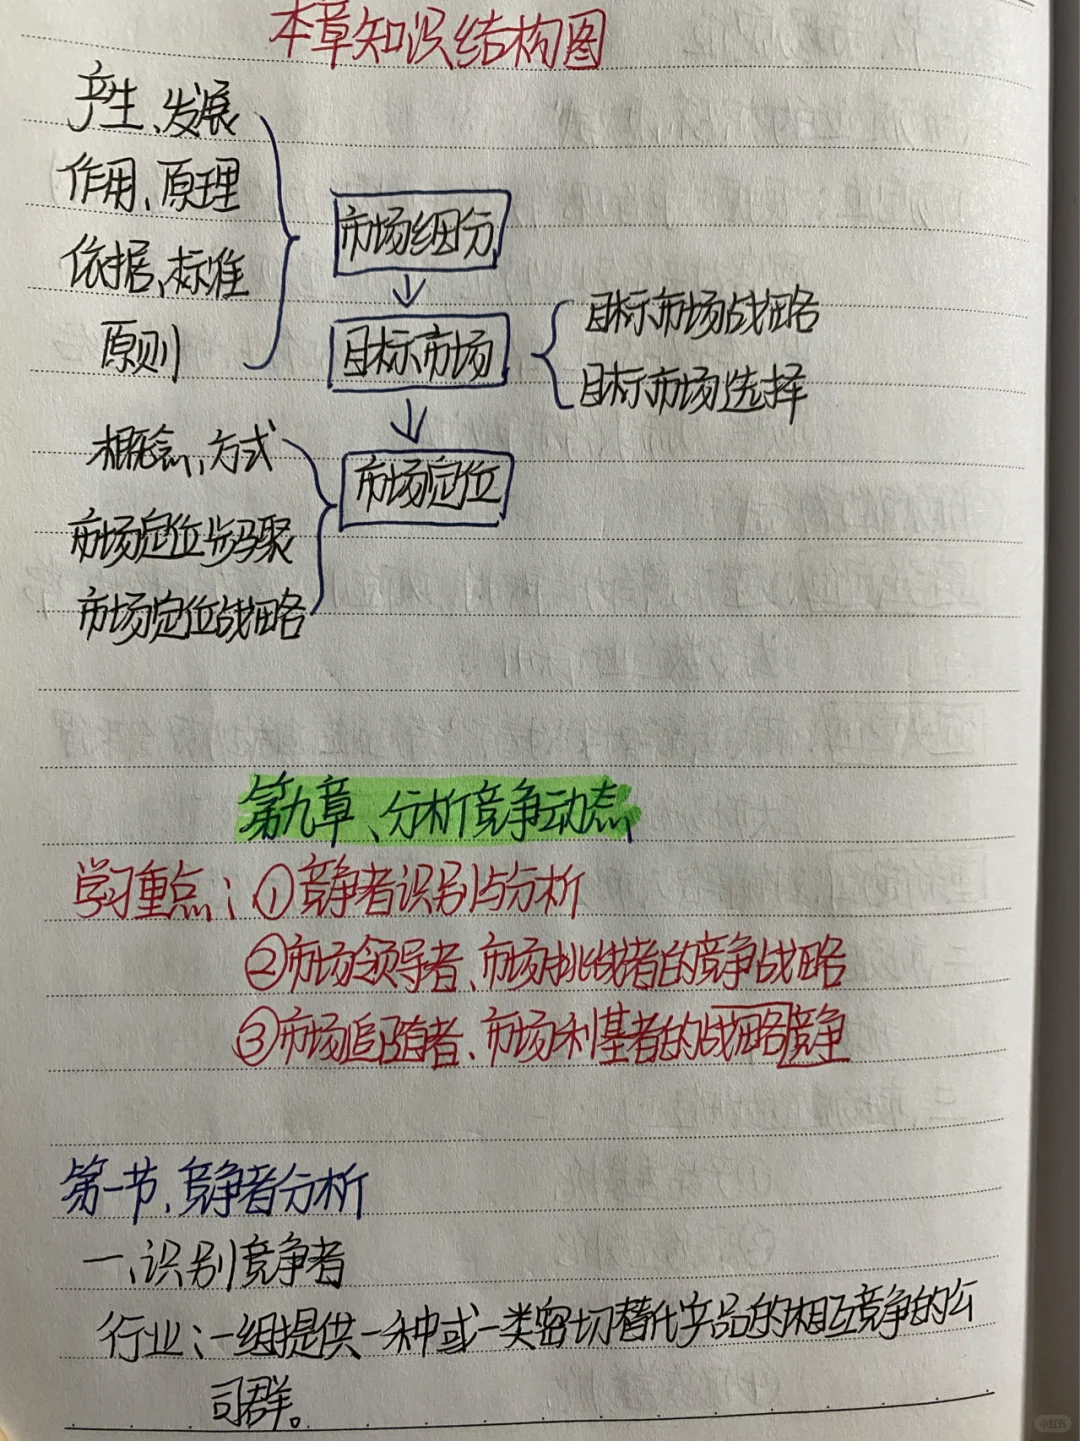 本章知识结构图
产生、发展
作用、原理
市场细分
依据、标准
目标市场战略
原则
目标市场
目标市场选择
概念、方式
市场定位
市场定位步骤
市场定位战略
第九章、分析竞争动态
学习重点：①竞争者识别与分析
②市场领导者、市场挑战者的竞争战略
③市场追随者、市场利基者的战略竞争
第一节、竞争者分析
一、识别竞争者
行业：一组提供一种或一类密切替代产品的相互竞争的公
司群。
小红书